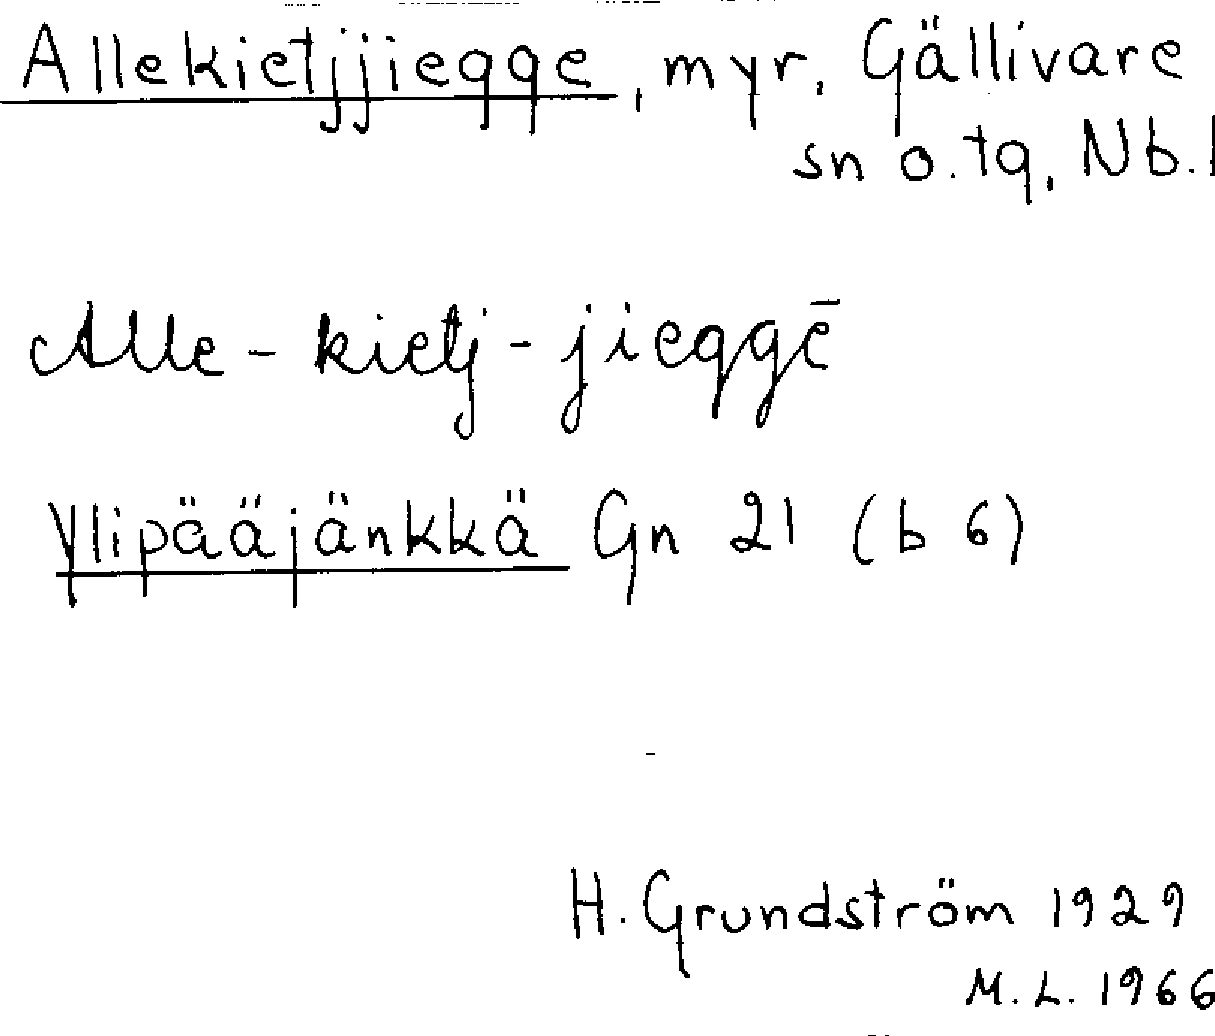 Allekietjjiegge, myr, Gällivare
sn o. tg, Nb. l
Alle - kietj - jieggē
Ylipääjänkkä Gn 21 (b 6)
H. Grundström 1929
M. L. 1966